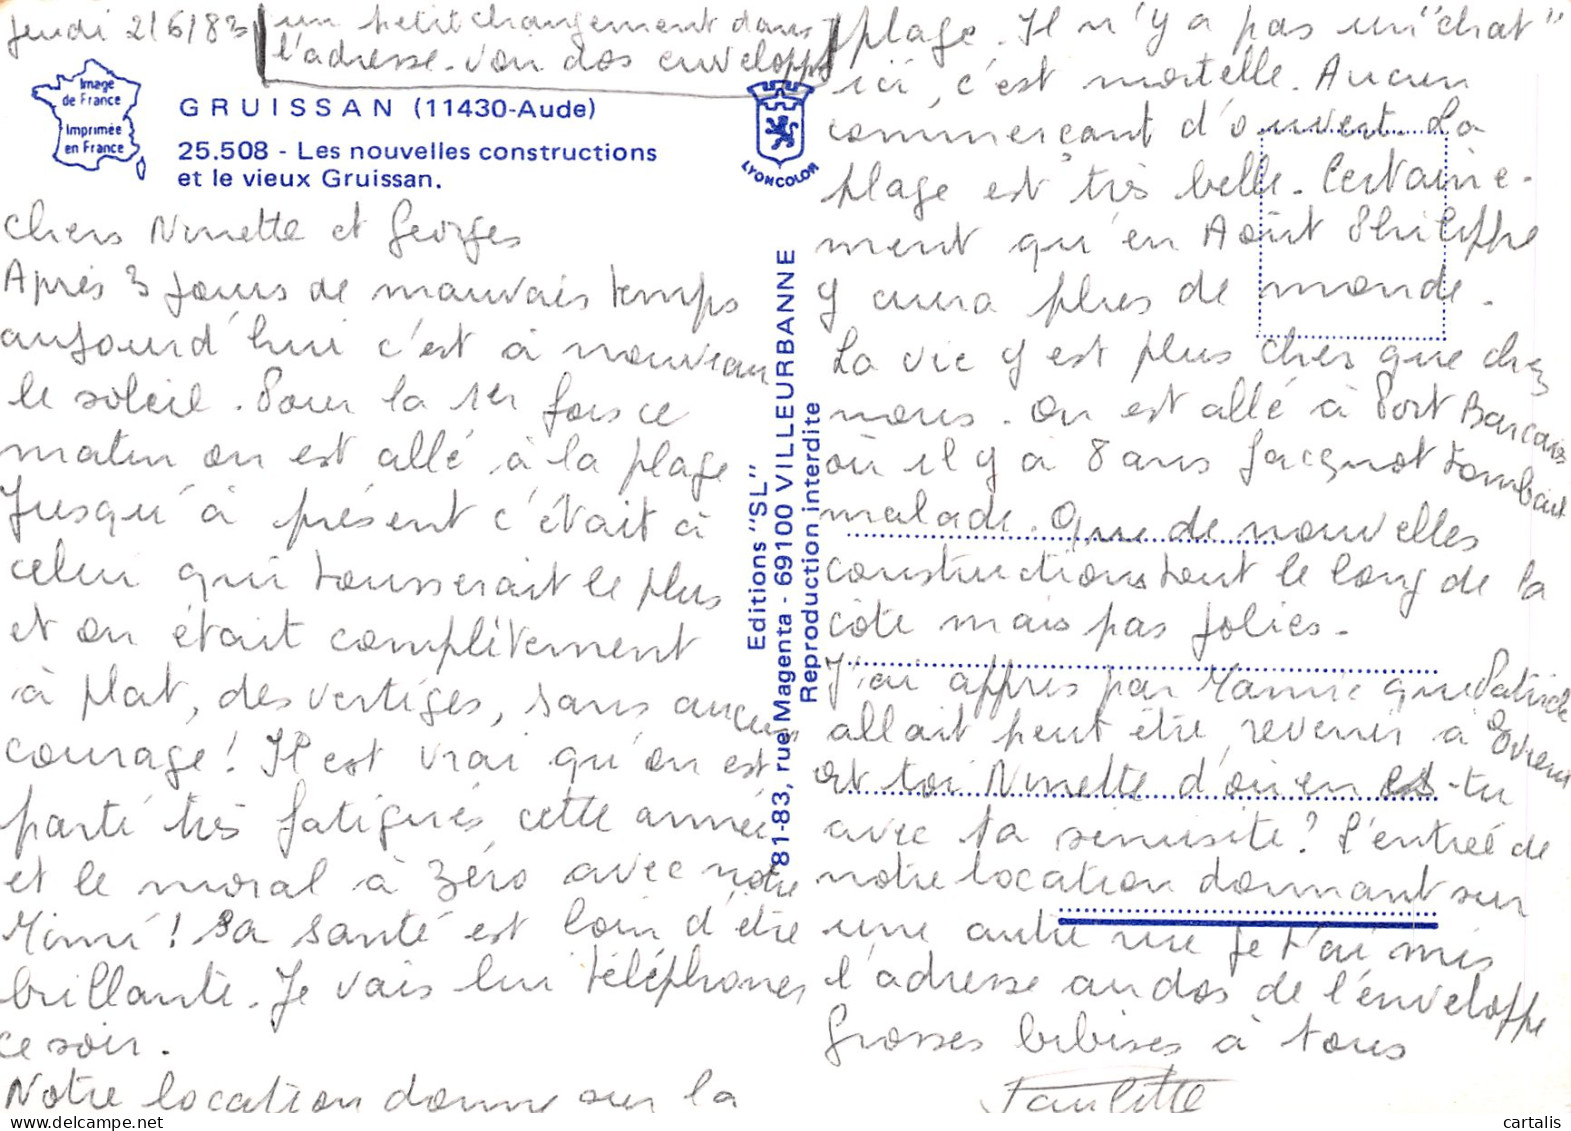 Jeudi 2/6/83
un petit changement dans
l'adresse. Voir dos enveloppe
Image
de France
Imprimée
en France
GRUISSAN (11430-Aude)
25.508 - Les nouvelles constructions
et le vieux Gruissan.
LYONCOLOR
Chers Ninette et Georges
Après 3 jours de mauvais temps
aujourd'hui c'est à nouveau
le soleil. Pour la 1er fois ce
matin on est allé à la plage
Jusqu'à présent c'était à
celui qui tousserait le plus
et on était complètement
à plat, des vertiges, sans aucun
courage! Il est vrai qu'on est
parti très fatigués cette année
et le moral à zéro avec notre
Mimi! Sa santé est loin d'être
brillante. Je vais lui téléphoner
ce soir.
Notre location donne sur la
Editions "SL"
81-83, rue Magenta - 69100 VILLEURBANNE
Reproduction interdite
plage. Il n'y a pas un "chat"
ici, c'est mortelle. Aucun
commerçant d'ouvert. La
plage est très belle. Certaine-
ment qu'en Août Philippe
y aura plus de monde.
La vie y est plus cher que chez
nous. On est allé à Port Barcarès
où il y a 8 ans Jacquot tombait
malade. Que de nouvelles
constructions tout le long de la
côte mais pas jolies.
J'ai appris par Mamie que Patrick
allait peut être revenir à Evreux
et toi Ninette d'où en es-tu
avec ta sinusite? L'entrée de
notre location donnant sur
une autre rue je t'ai mis
l'adresse au dos de l'enveloppe
Grosses bibises à tous
Paulette
cartalis